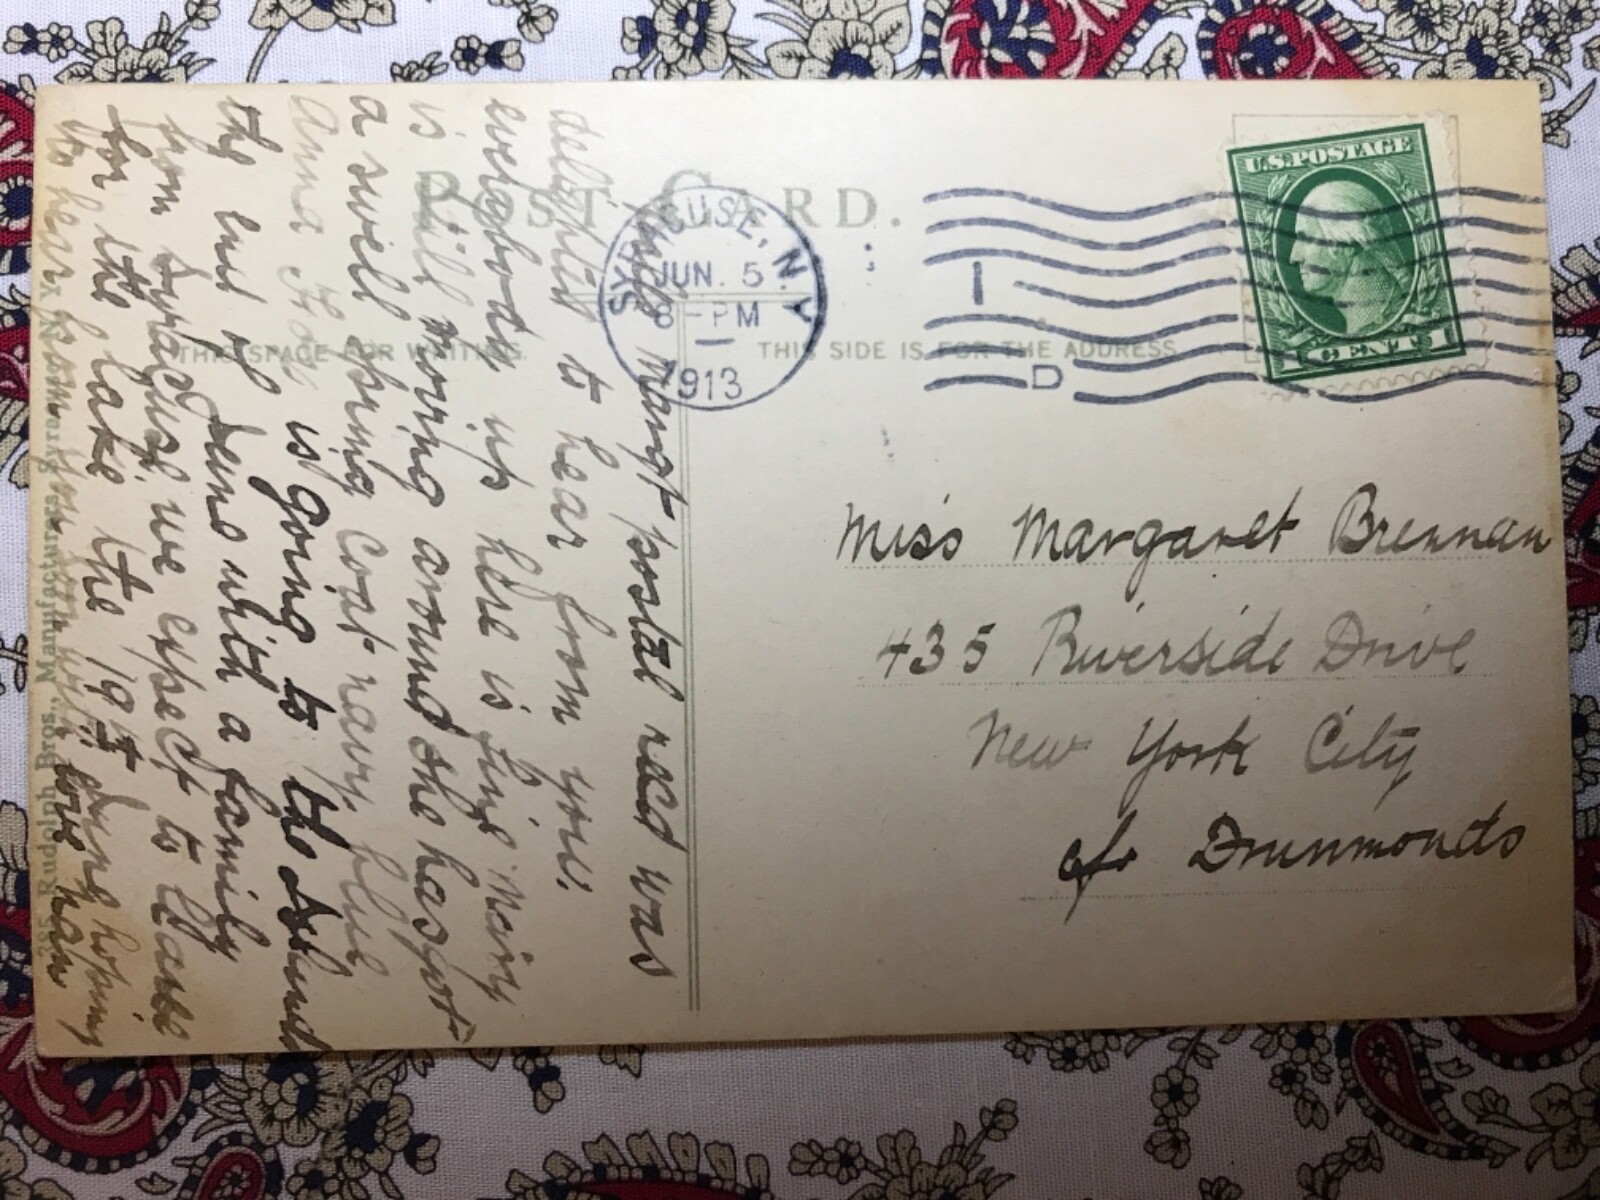 POST CARD.
SYRACUSE, N.Y.
JUN. 5
8-PM
1913
1
D
U.S.POSTAGE
1 CENT 1
THIS SPACE FOR WRITING.
THIS SIDE IS FOR THE ADDRESS.
Miss Margaret Brennan
435 Riverside Drive
New York City
c/o Drummonds
Margt postal recd was
delighted to hear from you.
everybody up here is fine Mary
is still moving around she has got
a swell spring coat navy blue
Anna is going to the
the end of June with a family
from Syracuse, we expect to leave
for the lake the 19th June hoping
to hear from you love Nan
Rudolph Bros., Manufacturers, Syracuse, N.Y.